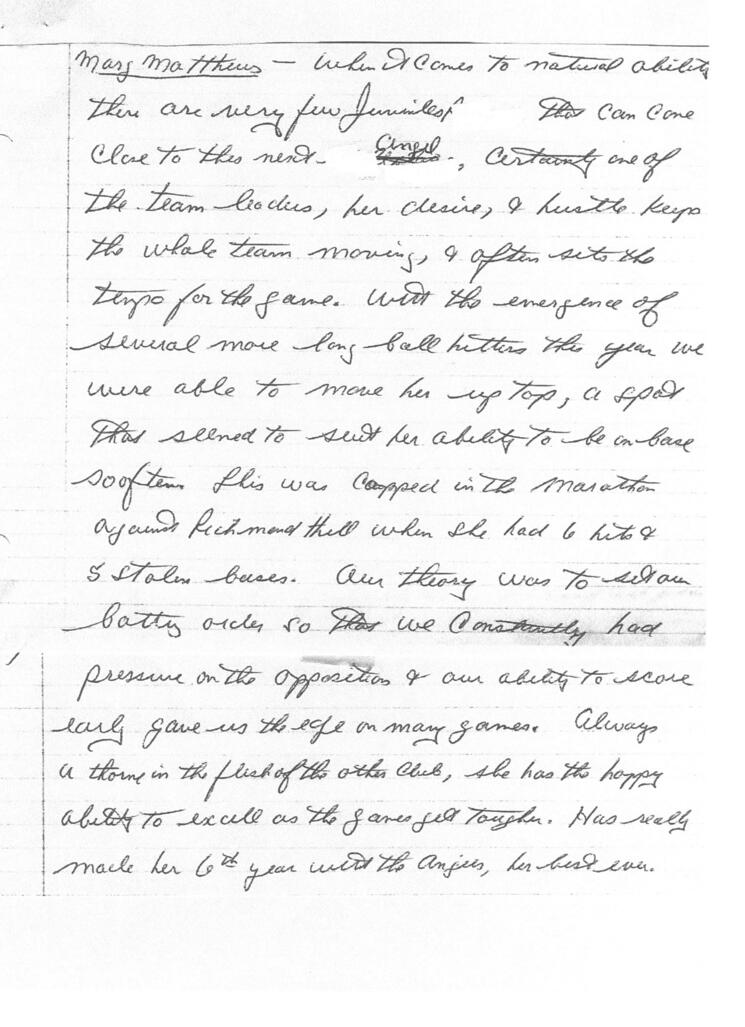 Marg Matthews - When it Comes to natural ability
there are very few Juveniles that can come
close to this next Angel, Certainly one of
the team leaders, her desire, & hustle keeps
the whole team moving, & often sets the
tempo for the game. With the emergence of
several more long ball hitters this year we
were able to move her up top, a spot
that seemed to suit her ability to be on base
so often This was capped in the marathon
against Richmond Hill when she had 6 hits &
5 stolen bases. Our theory was to set our
batty order so that we Constantly had
pressure on the opposition & our ability to score
early gave us the edge on many games. Always
a thorne in the flesh of the other Club, she has the happy
ability to excell as the games get tougher. Has really
made her 6th year with the Angels, her best ever.